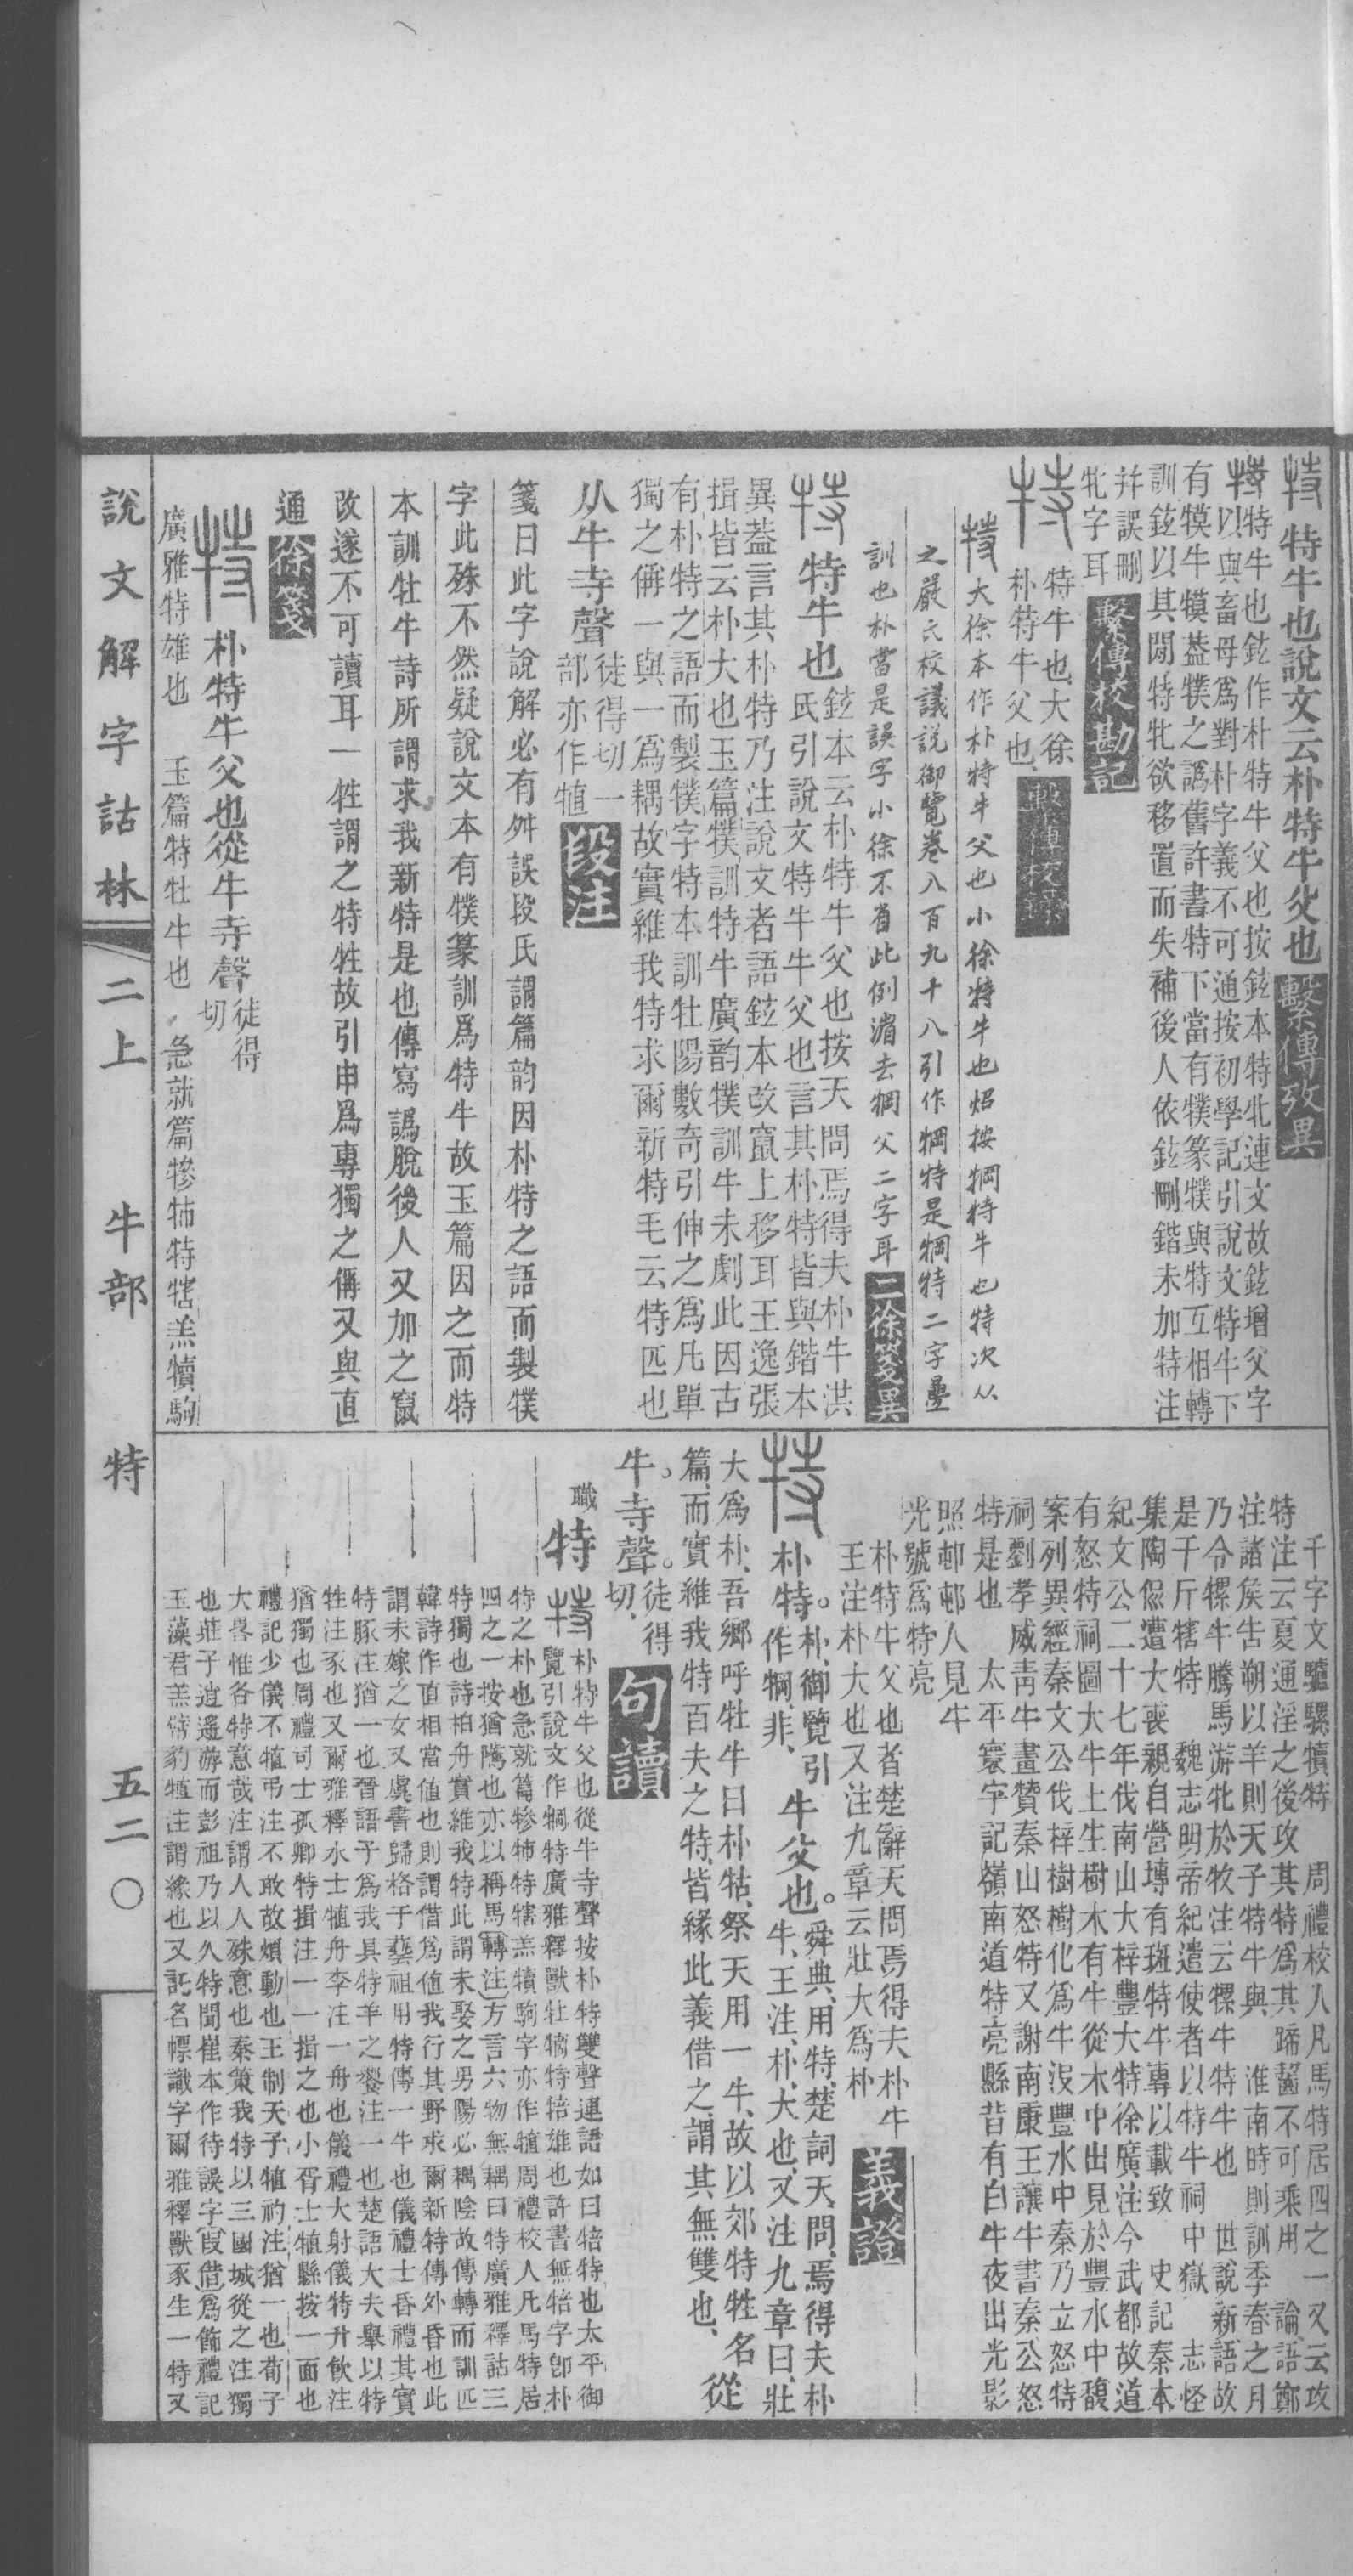 特 特牛也說文云朴特牛父也 繫傳攷異
特 特牛也鉉作朴特牛父也按鉉本特牝連文故鉉增父字
以與畜母爲對朴字義不可通按初學記引說文特牛下
有㹒牛㹒葢㹒之譌舊許書特下當有㹒篆㹒與特互相轉
訓鉉以其閒特牝欲移置而失補後人依鉉刪鍇未加特注
幷誤刪
牝字耳 繫傳校勘記
特 特牛也大徐
朴特牛父也 繫傳校錄
特 大徐本作朴特牛父也小徐特牛也炤按犅特牛也特次从
之嚴氏校議說御覽卷八百九十八引作犅特是犅特二字曡
訓也朴當是誤字小徐不省此例湻去犅父二字耳 二徐箋異
特 特牛也 鉉本云朴特牛父也按天問焉得夫朴牛洪
氏引說文特牛牛父也言其朴特皆與鍇本
異葢言其朴特乃注說文者語鉉本改竄上移耳王逸張
揖皆云朴大也玉篇㹒訓特牛廣韵㹒訓牛未劇此因古
有朴特之語而製㹒字特本訓牡陽數奇引伸之爲凡單
獨之偁一與一爲耦故實維我特求爾新特毛云特匹也
从牛寺聲 徒得切一
部亦作犆 段注
箋曰此字說解必有舛誤段氏謂篇韵因朴特之語而製㹒
字此殊不然疑說文本有㹒篆訓爲特牛故玉篇因之而特
本訓牡牛詩所謂求我新特是也傳寫譌脫後人又加之竄
改遂不可讀耳一牲謂之特牲故引申爲專獨之偁又與直
通 徐箋
特 朴特牛父也從牛寺聲 徒得
切
廣雅特雄也 玉篇特牡牛也 急就篇犙㹃特犗羔犢駒
千字文驢騾犢特 周禮校人凡馬特居四之一又云攻
特注云夏通淫之後攻其特爲其蹄齧不可乘用 論語鄭
注諸矦告朔以羊則天子特牛與 淮南時則訓季春之月
乃令犦牛騰馬游牝於牧注云犦牛特牛也 世說新語故
是千斤犗特 魏志明帝紀遣使者以特牛祠中嶽 志怪
集陶侃遭大喪親自營塼有斑特牛專以載致 史記秦本
紀文公二十七年伐南山大梓豐大特徐廣注今武都故道
有怒特祠圖大牛上生樹木有牛從木中出見於豐水中馥
案列異經秦文公伐梓樹樹化爲牛沒豐水中秦乃立怒特
祠劉孝威靑牛畫贊秦山怒特又謝南康王讓牛書秦公怒
特是也 太平寰宇記嶺南道特亮縣昔有白牛夜出光影
照邨邨人見牛
光號爲特亮
朴特牛父也者楚辭天問焉得夫朴牛
王注朴大也又注九章云壯大爲朴 義證
特 朴特。朴御覽引
作犅、非、牛父也。舜典、用特、楚詞天問、焉得夫朴
牛、王注、朴、大也、又注九章曰、壯
大爲朴、吾鄉呼牡牛曰朴牯、祭天用一牛、故以郊特牲名
篇、而實維我特百夫之特、皆緣此義借之、謂其無雙也、從
牛寺聲。徒得
切、 句讀
職 特 特 朴特牛父也從牛寺聲按朴特雙聲連語如曰犃特也太平御
覽引說文作犅特廣雅釋獸牡犗特犃雄也許書無犃字卽朴
特之朴也急就篇犙㹃特犗羔犢駒字亦作犆周禮校人凡馬特居
四之一按猶騭也亦以稱馬轉注方言六物無耦曰特廣雅釋詁三
特獨也詩柏舟實維我特此謂未娶之男陽必耦陰故傳轉而訓匹
韓詩作直相當値也則謂借爲値我行其野求爾新特傳外昏也此
謂未嫁之女又虞書歸格于藝祖用特傳一牛也儀禮士昏禮其實
特豚注猶一也晉語子爲我具特羊之饗注一也楚語大夫舉以特
牲注豕也又爾雅釋水士犆舟李注一舟也儀禮大射儀特升飮注
猶獨也周禮司士孤卿特揖注一一揖之也小胥士犆縣按一面也
禮記少儀不犆弔注不敢故煩動也王制天子犆礿注猶一也荀子
大畧惟各特意哉注謂人人殊意也秦策我特以三國城從之注獨
也莊子逍遙游而彭祖乃以久特聞崔本作待誤字叚借爲飾禮記
玉藻君羔幦豹犆注謂緣也又託名幖識字爾雅釋獸豕生一特又
說文解字詁林 二上 牛部 特 五二〇